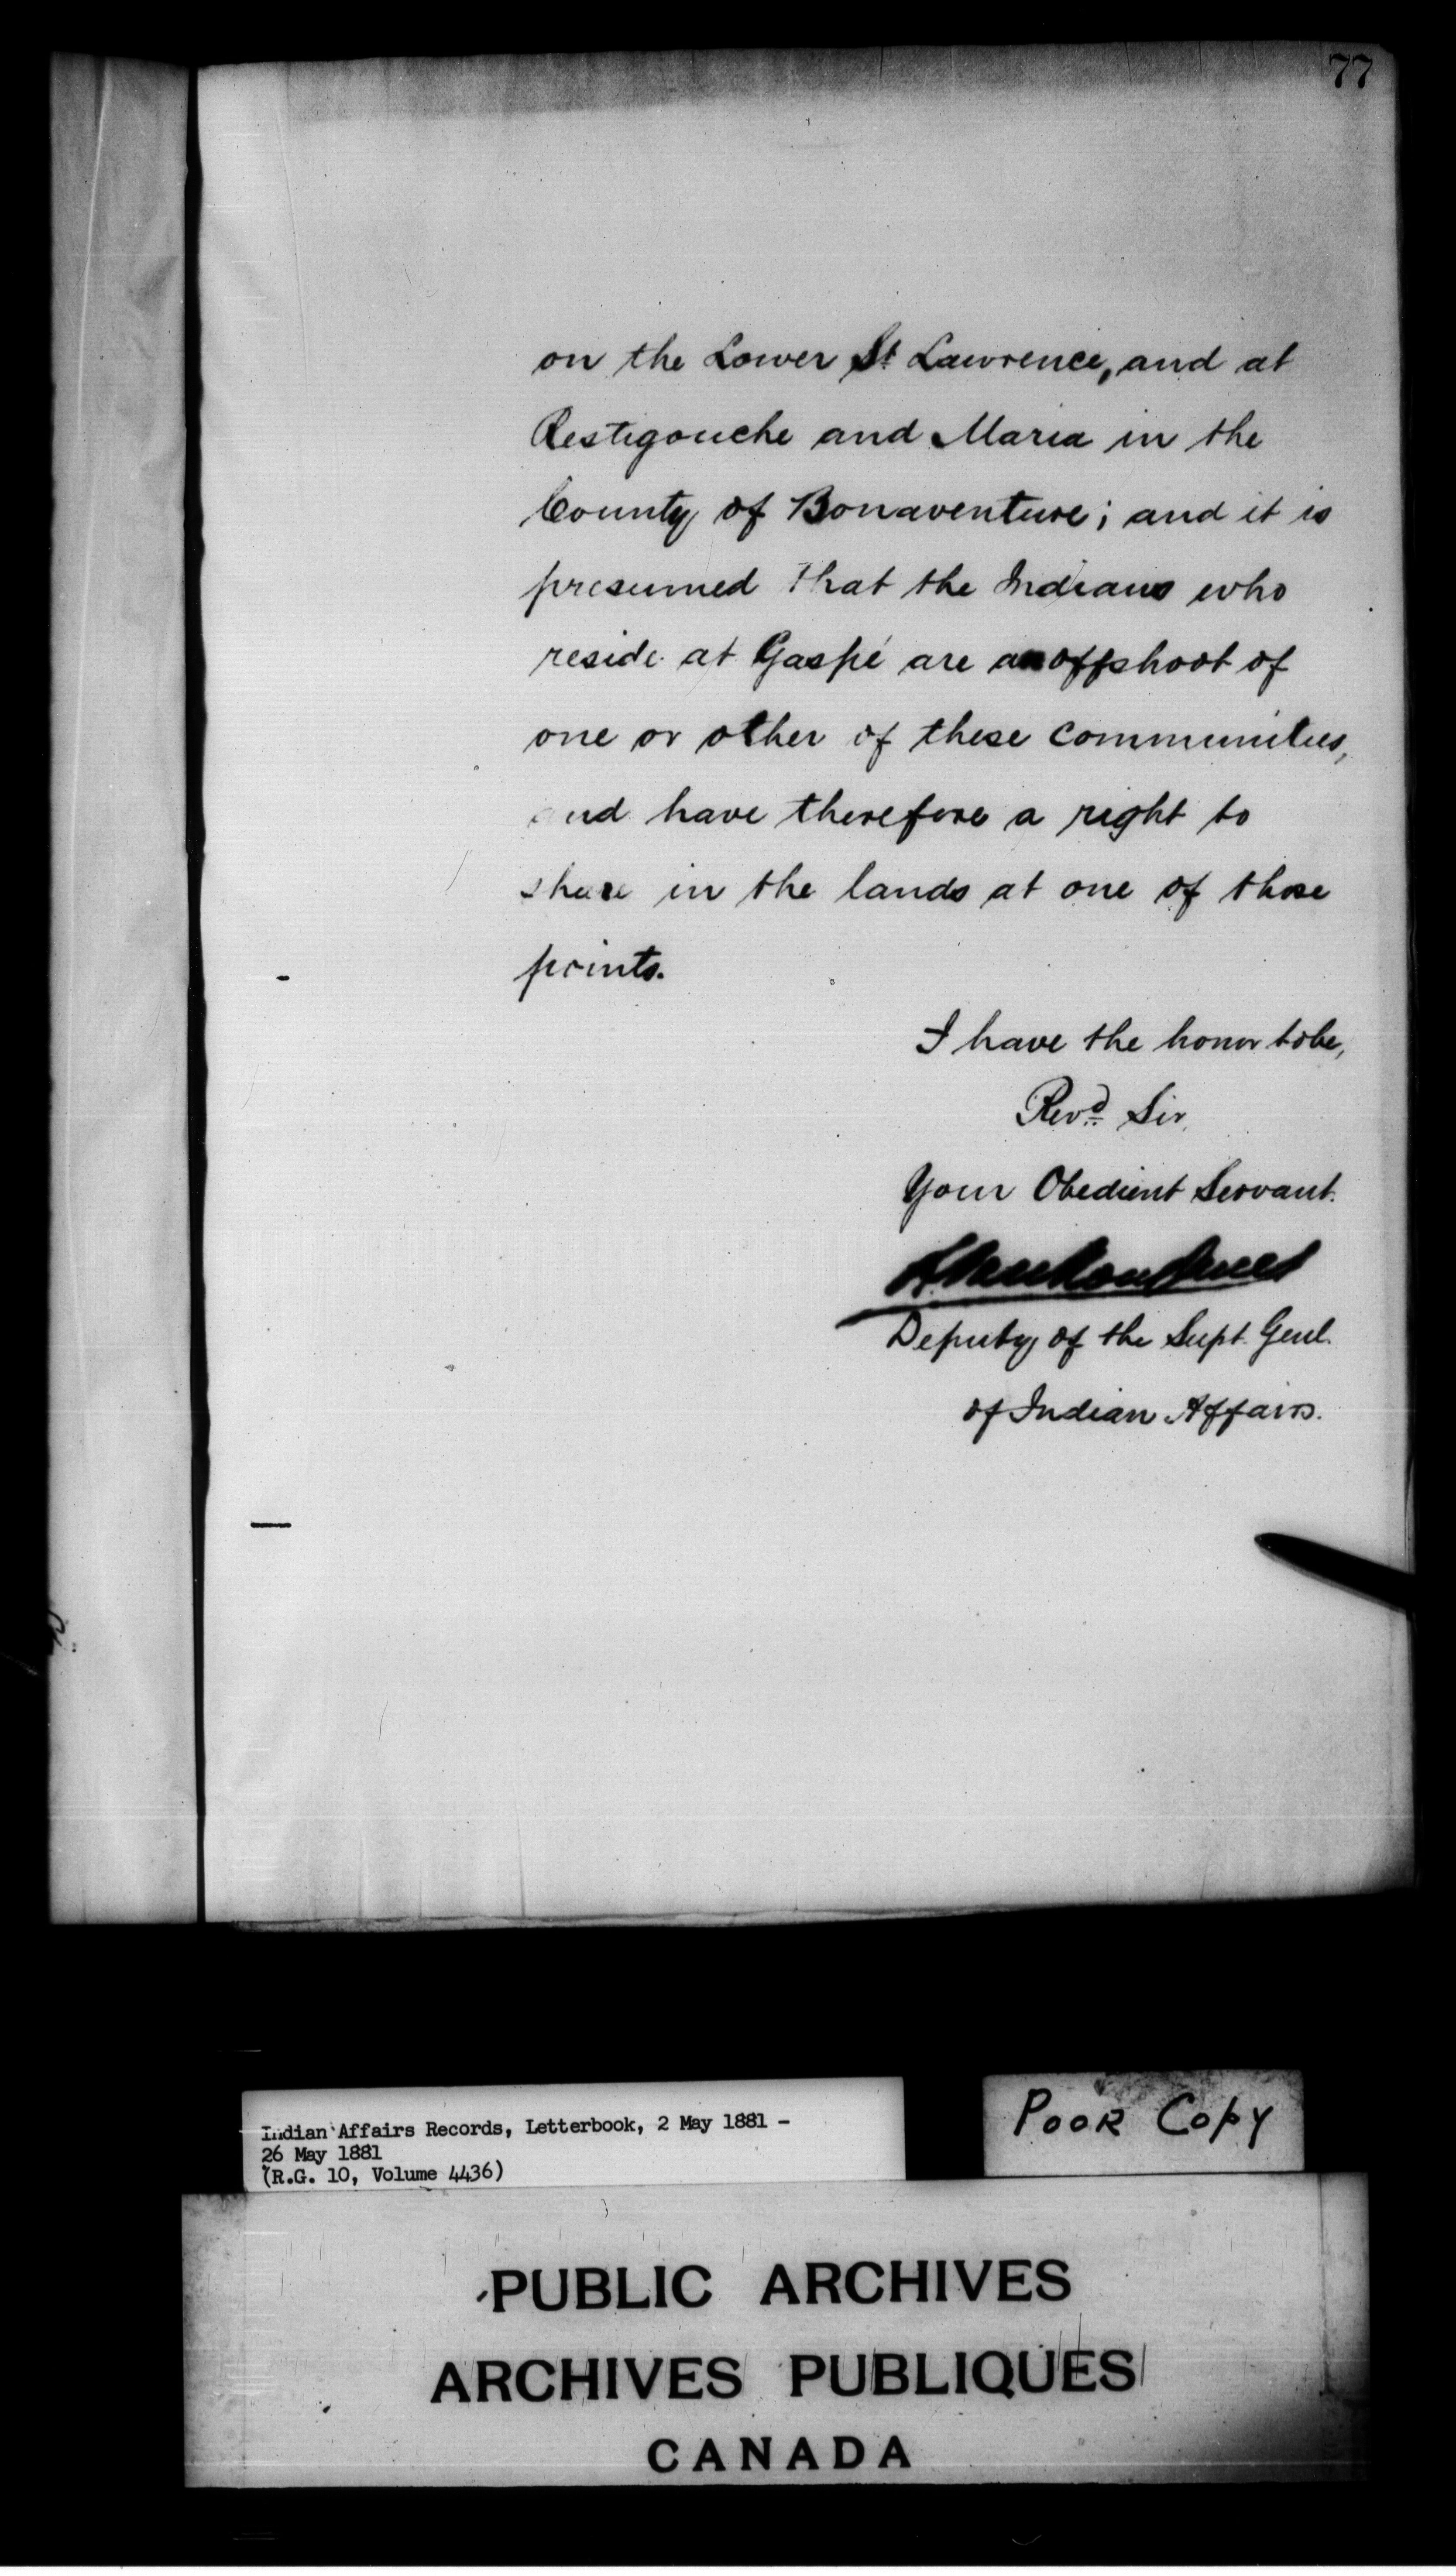 77
on the Lower St Lawrence, and at
Restigouche and Maria in the
County of Bonaventure; and it is
presumed that the Indians who
reside at Gaspé are an offshoot of
one or other of these communities,
and have therefore a right to
share in the lands at one of those
points.
I have the honor to be,
Revd Sir,
Your Obedient Servant.
L. VanKoughnet
Deputy of the Supt. Genl.
of Indian Affairs.
Indian Affairs Records, Letterbook, 2 May 1881 -
26 May 1881
(R.G. 10, Volume 4436)
POOR COPY
PUBLIC ARCHIVES
ARCHIVES PUBLIQUES
CANADA